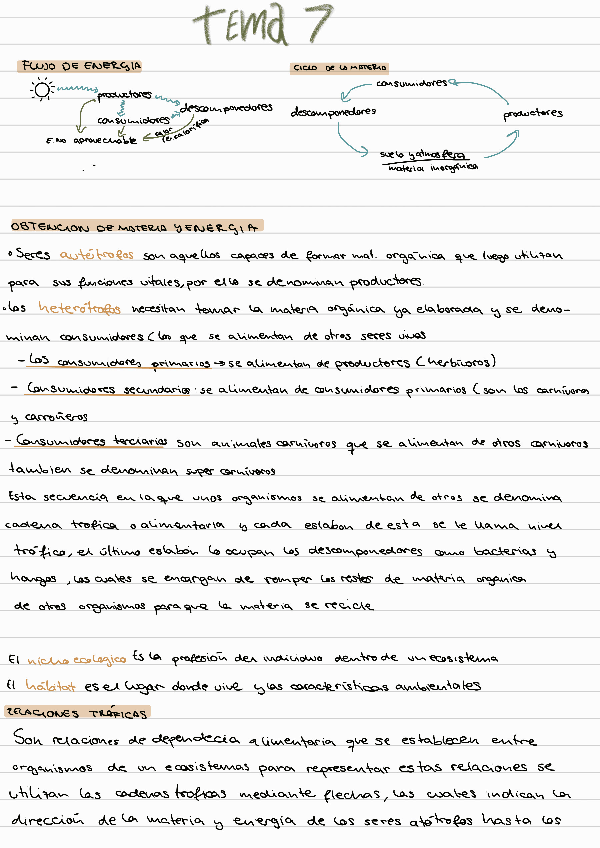 TEMA 7
FLUJO DE ENERGIA
CICLO DE LA MATERIA
productores
descomponedores
consumidores
E.no aprovechable
calor
consumidores
descomponedores
productores
suelo y atmosfera
materia inorgánica
OBTENCION DE MATERIA Y ENERGIA
• Seres autótrofos son aquellos capaces de formar mat. orgánica que luego utilizan
para sus funciones vitales, por ello se denominan productores
• Los heterótrofos necesitan tomar la materia orgánica ya elaborada y se deno-
minan consumidores (los que se alimentan de otros seres vivos
- Los consumidores primarios → se alimentan de productores (herbivoros)
- Consumidores secundarios: se alimentan de consumidores primarios (son los carnivoros
y carroñeros
- Consumidores terciarios son animales carnivoros que se alimentan de otros carnivoros
tambien se denominan super carnivoros
Esta secuencia en la que unos organismos se alimentan de otros se denomina
cadena trofica o alimentaria y cada eslabon de esta se le llama nivel
trófico, el último eslabón lo ocupan los descomponedores como bacterias y
hongos, los cuales se encargan de romper los restos de materia organica
de otros organismos para que la materia se recicle
El nicho ecologico Es la profesión del individuo dentro de un ecosistema
El hábitat es el lugar donde vive y las características ambientales
RELACIONES TRÓFICAS
Son relaciones de dependecia alimentaria que se establecen entre
organismos de un ecosistemas para representar estas relaciones se
utilizan las cadenas troficas mediante flechas, las cuales indican la
dirección de la materia y energia de los seres atótrofos hasta los